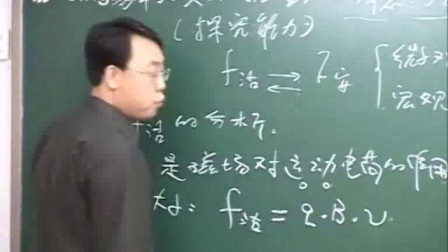 （探究能力）
f洛 ⇄ F安 { 微观
宏观
洛的分析.
是磁场对运动电荷的作用
大小: f洛 = q·B·v.